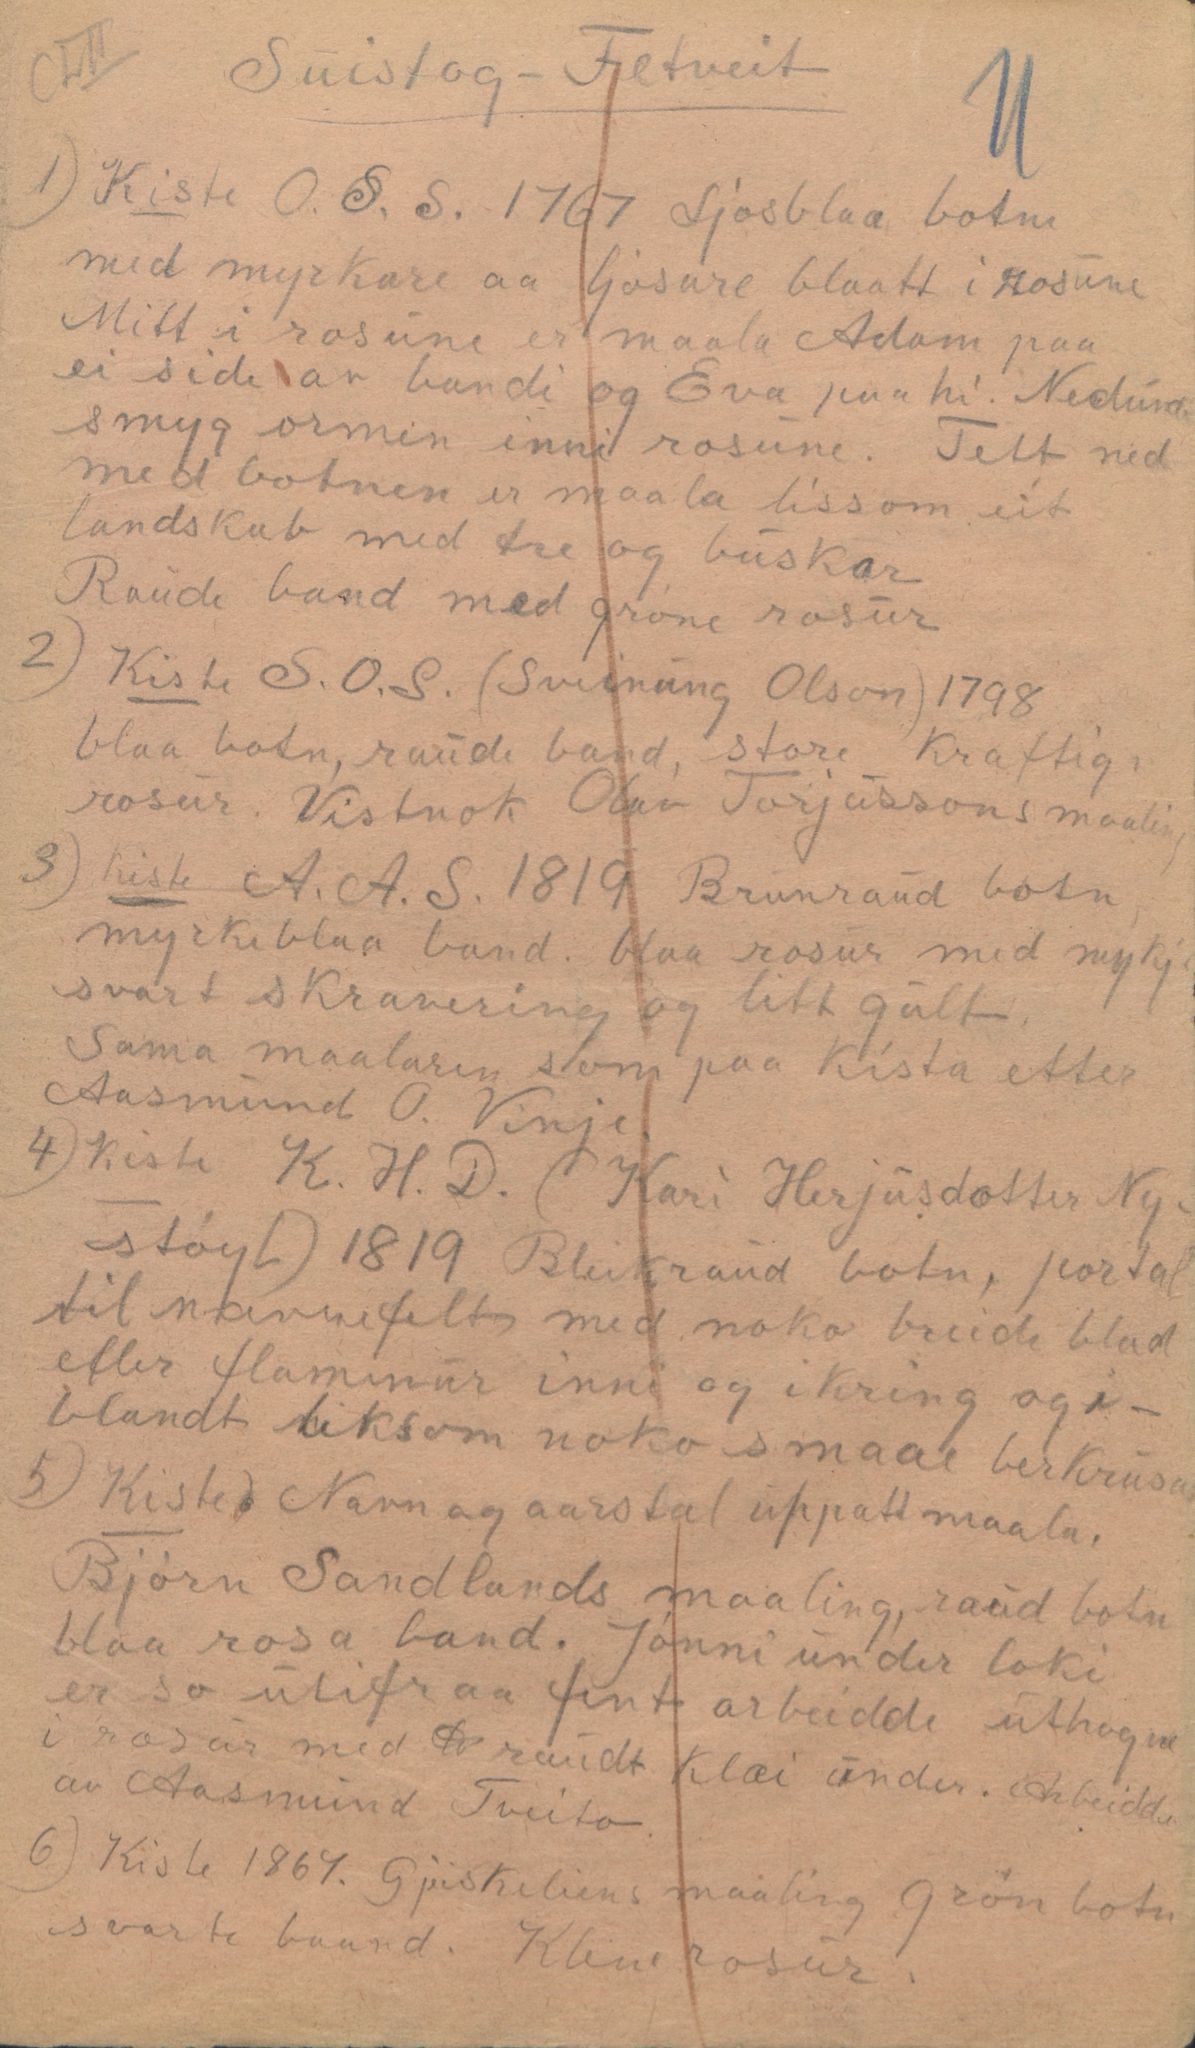 Suistog - Fletveit
1) Kiste O. S. S. 1767 Ljosblaa botne
med myrkare aa ljosare blaatt i rosune
Mitt i rosune er maala Adam paa
ei side av bandi og Eva paa hi. Nedunde
smyg ormen inni rosune. Tett ned
med botnen er maala lissom eit
landskab med tre og buskar
Raude band med gröne rosur
2) Kiste S. O. S. (Sveinung Olson) 1798
blaa botn, raude band, store kraftige
rosur. Vistnok Olav Torjussons maaling
3) kiste A. A. S. 1819 Brunraud botn,
myrkeblaa band. blaa rosur med mykje
svart skravering og litt gult.
Sama maalaren som paa kista etter
Aasmund O. Vinje.
4) Kiste K. H. D. (Kari Herjusdotter Ny-
stöyl) 1819 Bleikraud botn, portal
til navnefelt med noko breide blad
eller flammur inni og ikring og i-
blandt liksom noko smaae berkrusa
5) Kiste Navn og aarstal uppatt maala.
Björn Sandlands maaling, raud botn
blaa rosa band. Jönni under loki
er so utifraa fint arbeidde uthogne
i rosur med raudt klæi under. Arbeidde
av Aasmund Tveito.
6) Kiste 1864. maaling grön botn
svarte baand. Klene rosur.